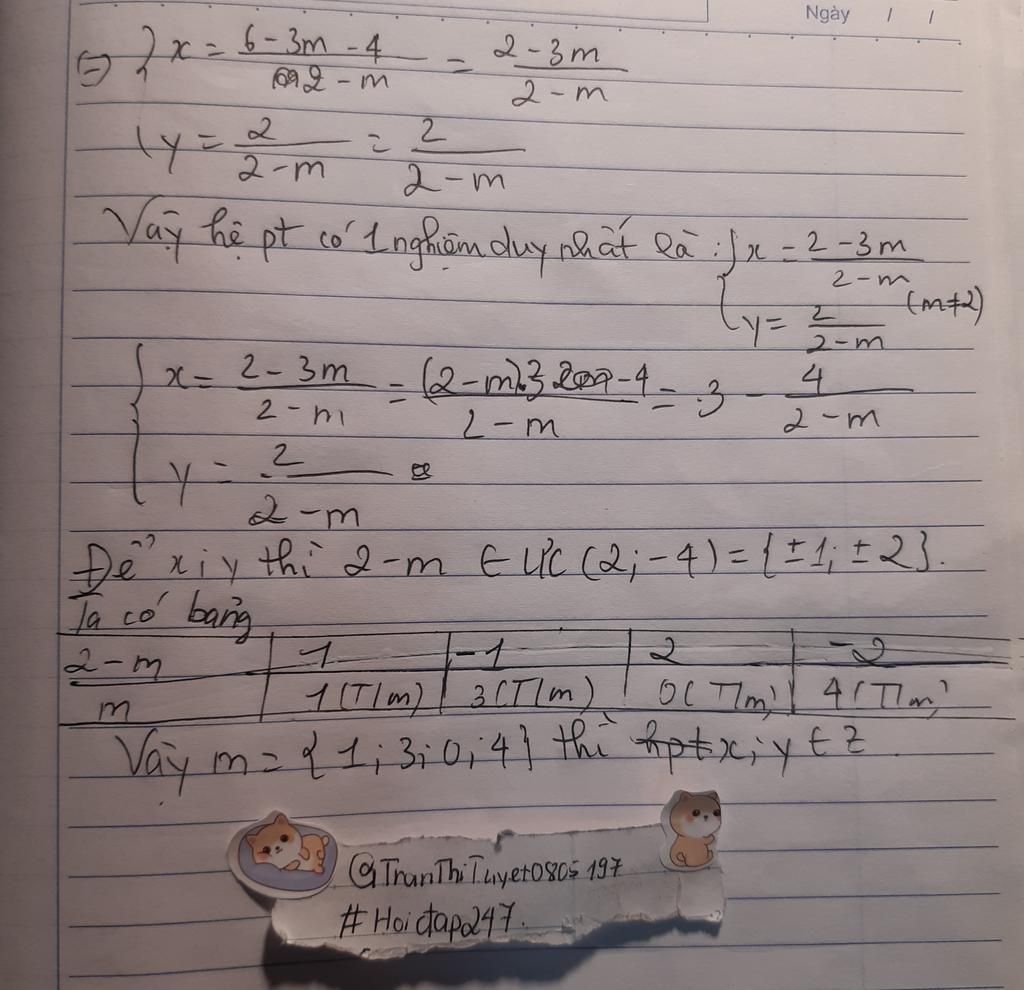 Ngày / /
⇒ { x = 6 - 3m - 4 / 2 - m = 2 - 3m / 2 - m
y = 2 / 2 - m = 2 / 2 - m
Vậy hệ pt có 1 nghiệm duy nhất là : { x = 2 - 3m / 2 - m
y = 2 / 2 - m (m ≠ 2)
{ x = 2 - 3m / 2 - m = (2 - m).3 - 4 / 2 - m = 3 - 4 / 2 - m
y = 2 / 2 - m
Để x; y thì 2 - m ∈ ƯC (2; -4) = {±1; ±2}.
Ta có bảng
2 - m 1 -1 2 -2
m 1 (T/m) 3 (T/m) 0 (T/m) 4 (T/m)
Vậy m = {1; 3; 0; 4} thì hpt x; y ∈ Z.
@TranThiTuyet0805197
#Hoidap247.